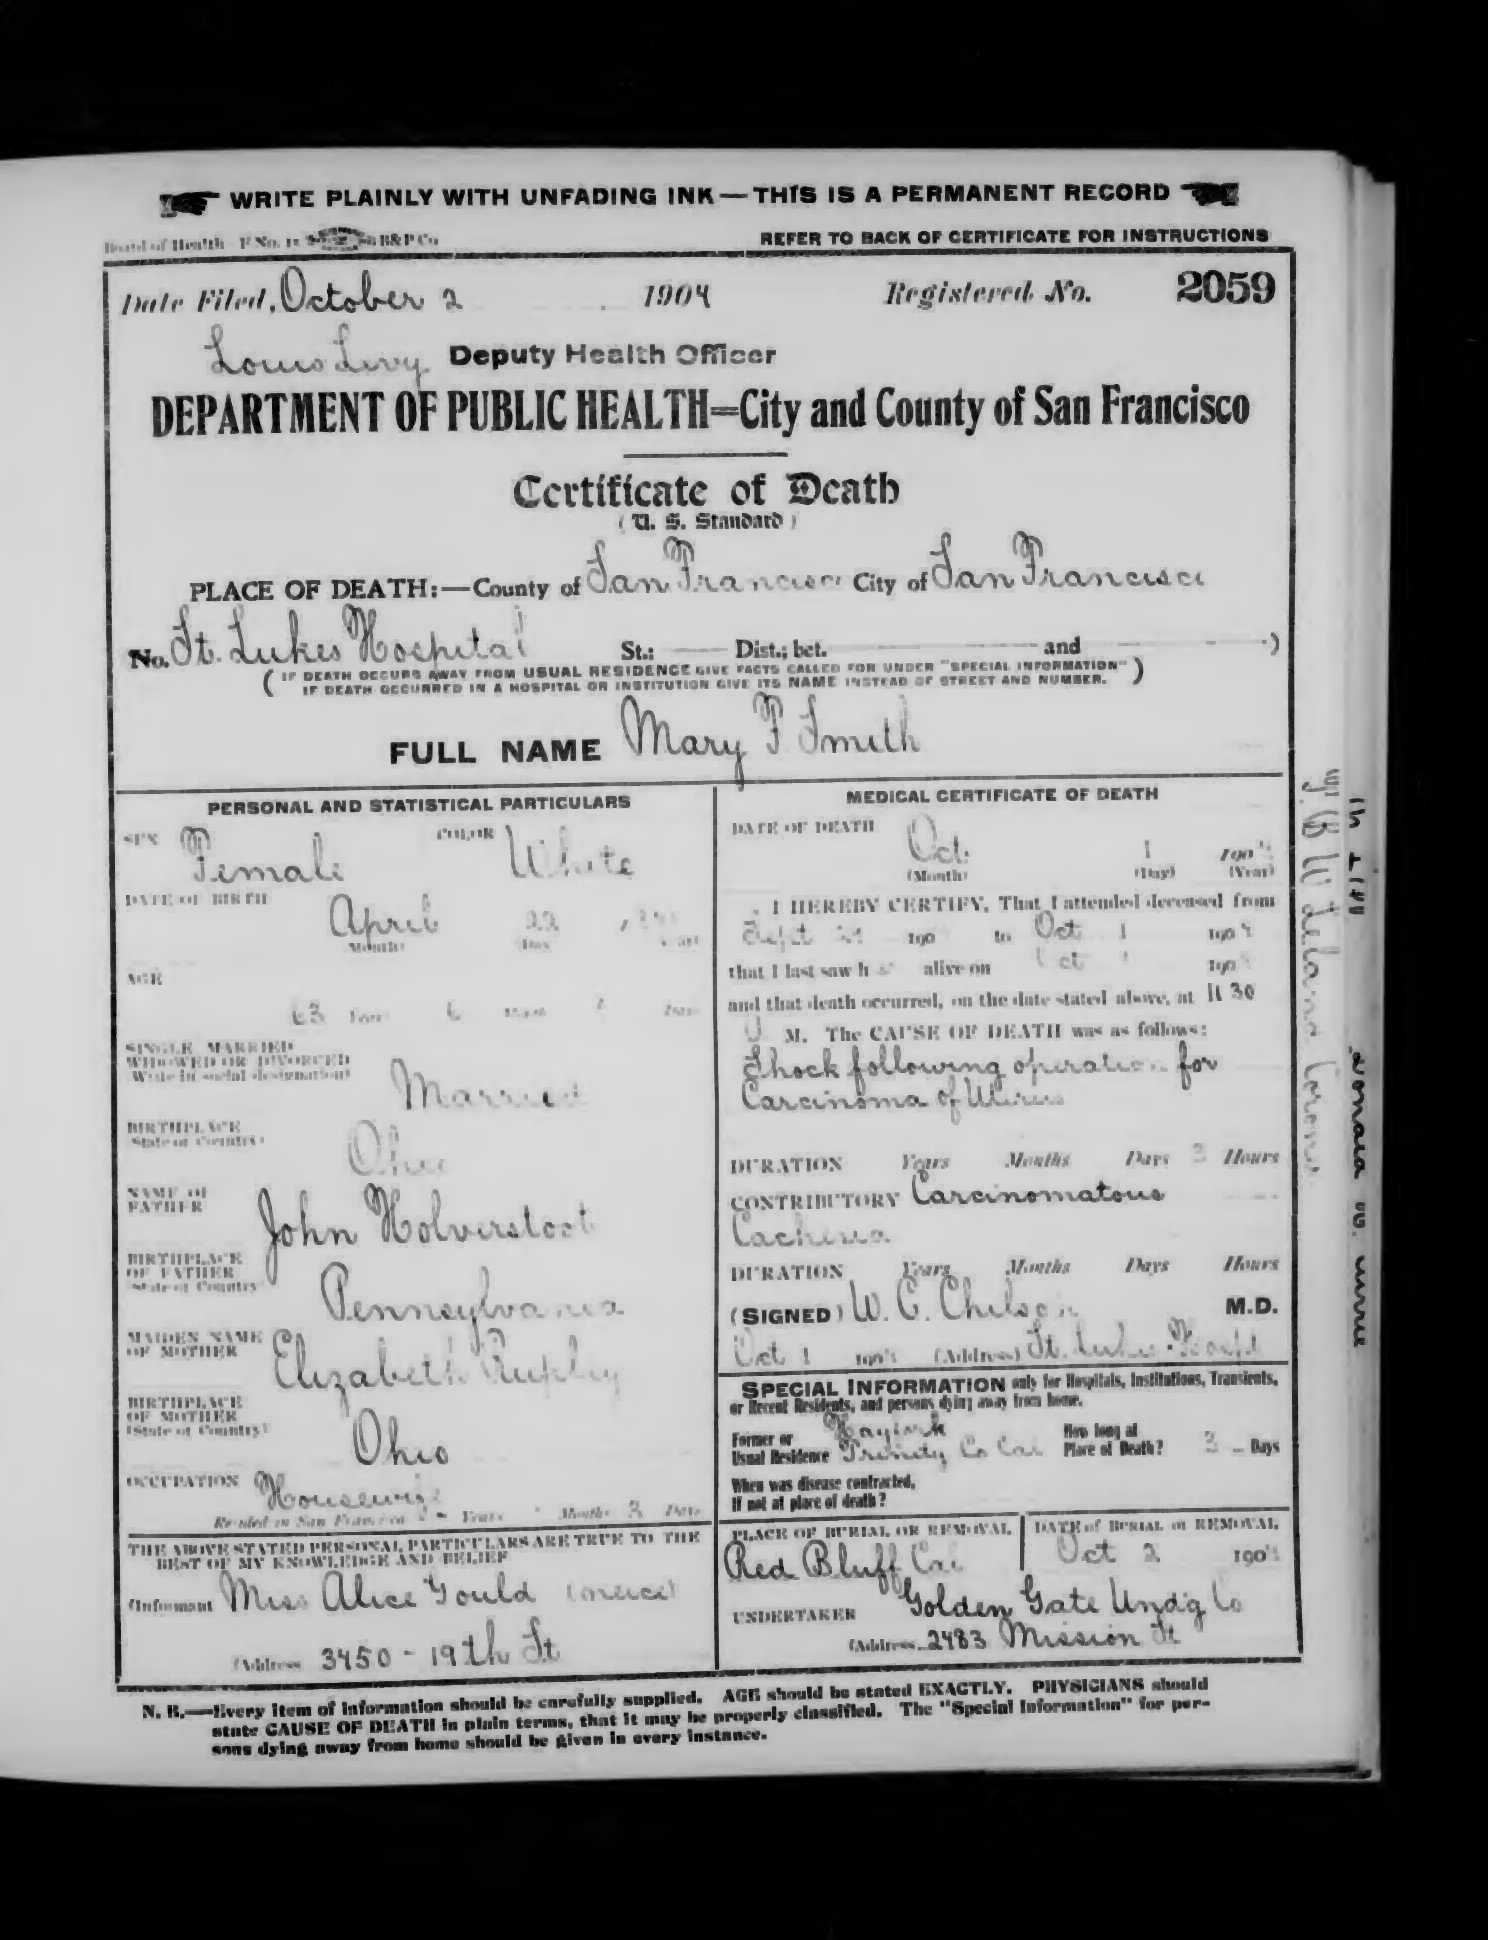 WRITE PLAINLY WITH UNFADING INK — THIS IS A PERMANENT RECORD
Board of Health F No. B&P Co
REFER TO BACK OF CERTIFICATE FOR INSTRUCTIONS
Date Filed, October 2 1904 Registered No. 2059
Louis Levy Deputy Health Officer
DEPARTMENT OF PUBLIC HEALTH=City and County of San Francisco
Certificate of Death
(U. S. Standard)
PLACE OF DEATH:—County of San Francisco City of San Francisco
No. St. Lukes Hospital St.; Dist.; bet. and )
( IF DEATH OCCURS AWAY FROM USUAL RESIDENCE GIVE FACTS CALLED FOR UNDER "SPECIAL INFORMATION" )
IF DEATH OCCURRED IN A HOSPITAL OR INSTITUTION GIVE ITS NAME INSTEAD OF STREET AND NUMBER.
FULL NAME Mary F Smith
PERSONAL AND STATISTICAL PARTICULARS
SEX Female COLOR White
DATE OF BIRTH
April 22
Month Day Year
AGE
63 Years 6 Months Days
SINGLE MARRIED
WIDOWED OR DIVORCED
Write in social designation
Married
BIRTHPLACE
State or Country
Ohio
NAME OF
FATHER
John Holverstoot
BIRTHPLACE
OF FATHER
State or Country
Pennsylvania
MAIDEN NAME
OF MOTHER
Elizabeth
BIRTHPLACE
OF MOTHER
(State or Country)
Ohio
OCCUPATION Housewife
Resided in San Francisco - Years Months 3 Days
THE ABOVE STATED PERSONAL PARTICULARS ARE TRUE TO THE
BEST OF MY KNOWLEDGE AND BELIEF
(Informant Miss Alice Gould (neice)
(Address 3450 - 19th St
MEDICAL CERTIFICATE OF DEATH
DATE OF DEATH
Oct. 1 1904
(Month) (Day) (Year)
I HEREBY CERTIFY, That I attended deceased from
Sept 190 to Oct 1 1904
that I last saw h alive on Oct 1 190
and that death occurred, on the date stated above, at 11 30
M. The CAUSE OF DEATH was as follows:
Shock following operation for
Carcinoma of Uterus
DURATION Years Months Days 3 Hours
CONTRIBUTORY Carcinomatous
Cachexia
DURATION Years Months Days Hours
(SIGNED) W. C. Chilson M.D.
Oct 1 1904 (Address) St. Lukes Hospt
SPECIAL INFORMATION only for Hospitals, Institutions, Transients,
or Recent Residents, and persons dying away from home.
Former or
Usual Residence Hayfork
Trinity Co Cal
How long at
Place of Death? 3 Days
When was disease contracted,
If not at place of death?
PLACE OF BURIAL OR REMOVAL
Red Bluff Cal
DATE of BURIAL or REMOVAL
Oct 2 1904
UNDERTAKER Golden Gate Und'g Co
(Address 2483 Mission St
N. B.—Every item of information should be carefully supplied. AGE should be stated EXACTLY. PHYSICIANS should
state CAUSE OF DEATH in plain terms, that it may be properly classified. The "Special Information" for per-
sons dying away from home should be given in every instance.